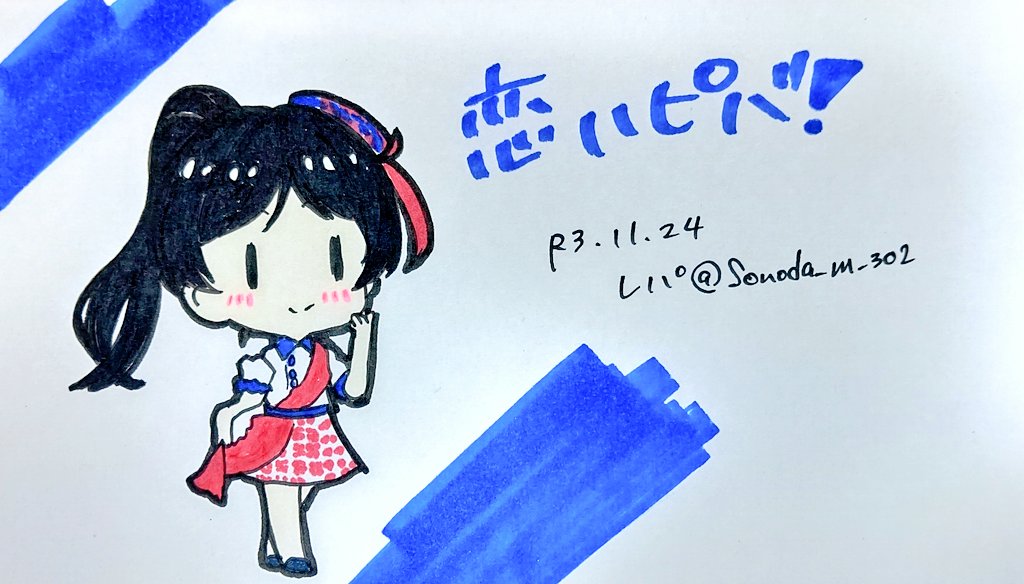 恋ハピバ!
R3.11.24
しパ@Sonoda_m_302